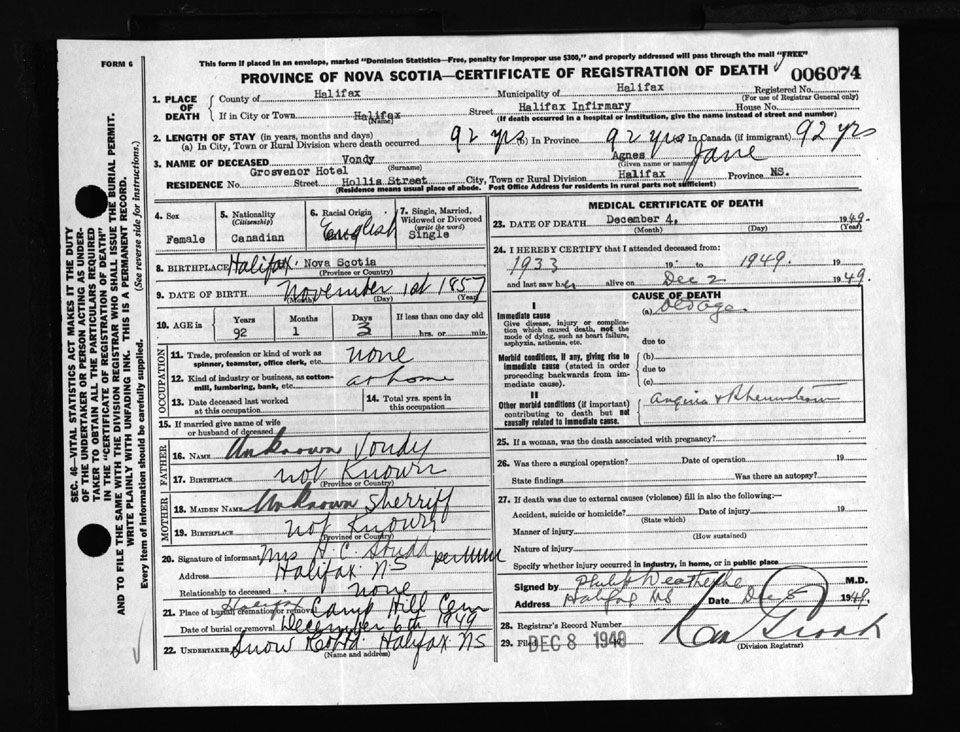 FORM 6
This form if placed in an envelope, marked "Dominion Statistics—Free, penalty for improper use $300," and properly addressed will pass through the mail "FREE"
PROVINCE OF NOVA SCOTIA—CERTIFICATE OF REGISTRATION OF DEATH 006074
1. PLACE OF DEATH
County of Halifax Municipality of Halifax Registered No.
(For use of Registrar General only)
If in City or Town Halifax Street Halifax Infirmary House No.
(Name) (If death occurred in a hospital or institution, give the name instead of street and number)
2. LENGTH OF STAY (in years, months and days)
(a) In City, Town or Rural Division where death occurred 92 yrs (b) In Province 92 yrs In Canada (if immigrant) 92 yrs
3. NAME OF DECEASED Vondy Agnes Jane
(Surname) (Given name or names)
Grosvenor Hotel
RESIDENCE No. Street Hollis Street City, Town or Rural Division Halifax Province NS.
(Residence means usual place of abode. Post Office Address for residents in rural parts not sufficient)
SEC. 46—VITAL STATISTICS ACT MAKES IT THE DUTY
OF THE UNDERTAKER OR PERSON ACTING AS UNDER-
TAKER TO OBTAIN ALL THE PARTICULARS REQUIRED
IN THE "CERTIFICATE OF REGISTRATION OF DEATH"
AND TO FILE THE SAME WITH THE DIVISION REGISTRAR WHO SHALL ISSUE THE BURIAL PERMIT.
WRITE PLAINLY WITH UNFADING INK. THIS IS A PERMANENT RECORD.
Every item of information should be carefully supplied. (See reverse side for instructions.)
4. Sex Female
5. Nationality (Citizenship) Canadian
6. Racial Origin English
7. Single, Married, Widowed or Divorced (write the word) Single
8. BIRTHPLACE Halifax. Nova Scotia
(Province or Country)
9. DATE OF BIRTH November 1st 1857
(Month) (Day) (Year)
10. AGE in Years Months Days If less than one day old
92 1 3 hrs. or min.
OCCUPATION
11. Trade, profession or kind of work as spinner, teamster, office clerk, etc. none
12. Kind of industry or business, as cotton-mill, lumbering, bank, etc. at home
13. Date deceased last worked at this occupation
14. Total yrs. spent in this occupation
15. If married give name of wife or husband of deceased
FATHER
16. NAME Unknown Vondy
17. BIRTHPLACE not Known
(Province or Country)
MOTHER
18. MAIDEN NAME Unknown Sherriff
19. BIRTHPLACE not Known
(Province or Country)
20. Signature of informant Mrs H. C.
Address Halifax NS
Relationship to deceased none
21. Place of burial, cremation or removal Halifax Camp Hill Cem
Date of burial or removal December 6th 1949
22. Undertaker Snow Halifax NS
(Name and address)
MEDICAL CERTIFICATE OF DEATH
23. DATE OF DEATH December 4, 1949.
(Month) (Day) (Year)
24. I HEREBY CERTIFY that I attended deceased from:
1933 19 to 1949. 19
and last saw her alive on Dec 2 1949.
CAUSE OF DEATH
I
Immediate cause
Give disease, injury or complication which caused death, not the mode of dying, such as heart failure, asphyxia, asthenia, etc.
(a) Old age.
due to
Morbid conditions, if any, giving rise to immediate cause (stated in order proceeding backwards from immediate cause).
(b)
due to
(c)
II
Other morbid conditions (if important) contributing to death but not causally related to immediate cause.
Angina & Rheumatism
25. If a woman, was the death associated with pregnancy?
26. Was there a surgical operation? Date of operation 19
State findings Was there an autopsy?
27. If death was due to external causes (violence) fill in also the following:—
Accident, suicide or homicide? Date of injury 19
(State which)
Manner of injury
(How sustained)
Nature of injury
Specify whether injury occurred in industry, in home, or in public place
Signed by Philip Weatherbe M.D.
Address Halifax NS Date Dec 8 1949.
28. Registrar's Record Number
29. Filed DEC 8 1949
(Division Registrar)